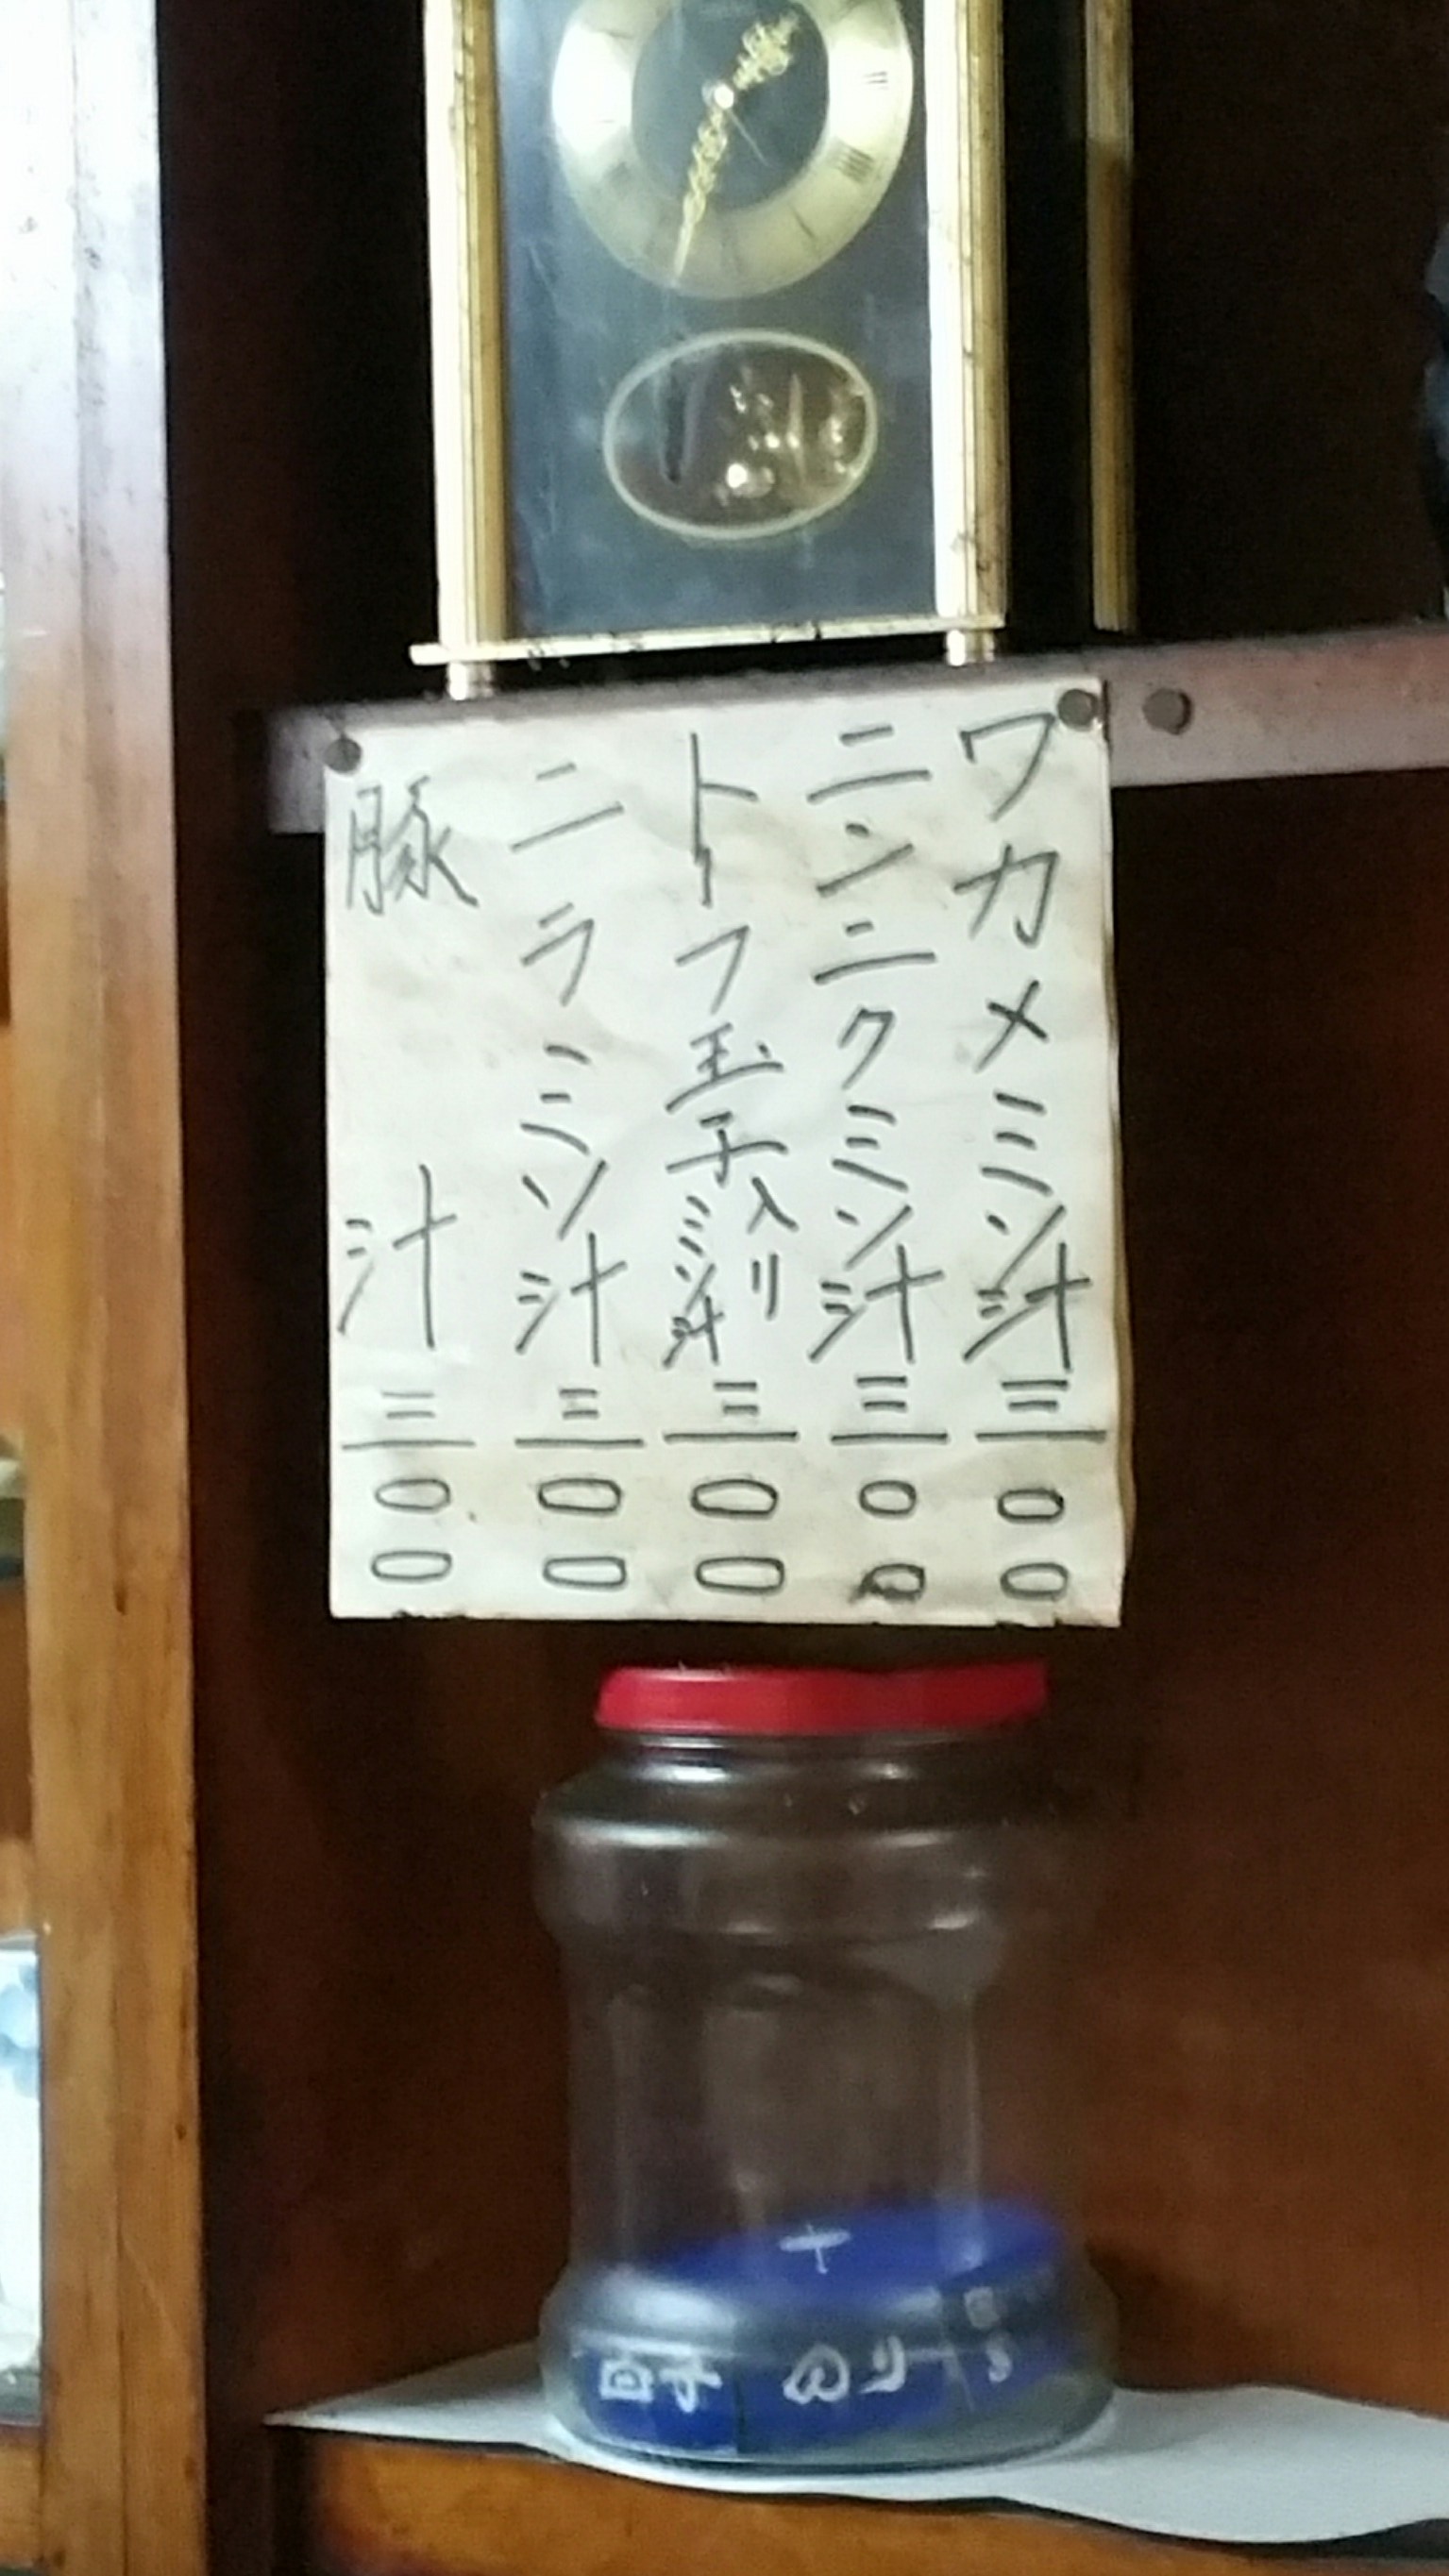 ワカメミソ汁 三〇〇
ニンニクミソ汁 三〇〇
トーフ玉子入リミソ汁 三〇〇
ニラミソ汁 三〇〇
豚汁 三〇〇